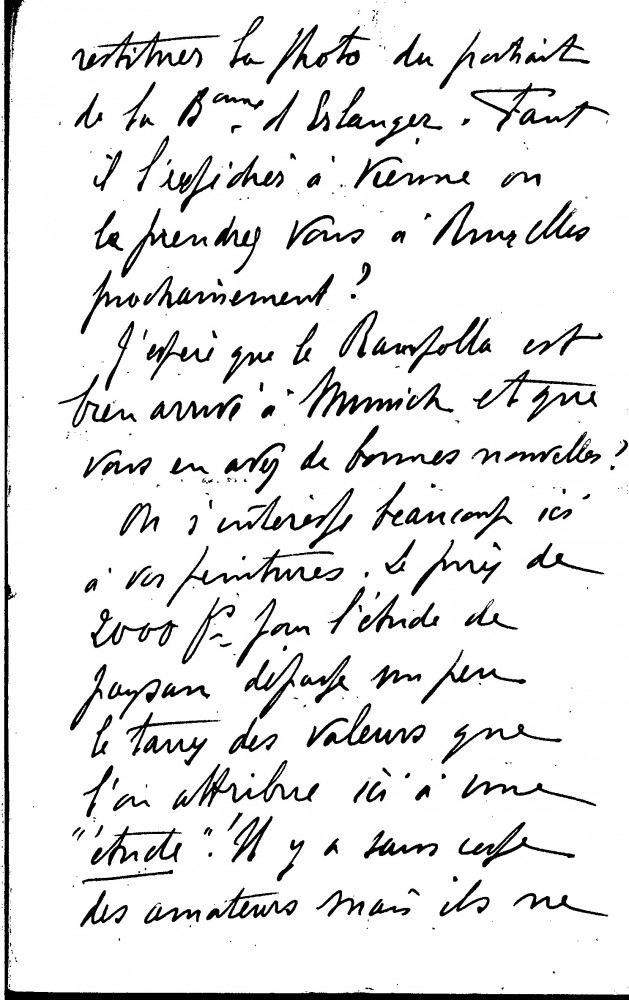 restituer la photo du portrait
de la Bonne d'Erlanger. Faut
il l'expédier à Vienne ou
le prendrez vous à Bruxelles
prochainement?
J'espère que le Rampolla est
bien arrivé à Munich et que
vous en avez de bonnes nouvelles?
On s'intéresse beaucoup ici
à vos peintures. Le prix de
2000 frs pour l'étude de
paysan dépasse un peu
le taux des valeurs que
l'on attribue ici à une
"étude"! Il y a sans cesse
des amateurs mais ils ne